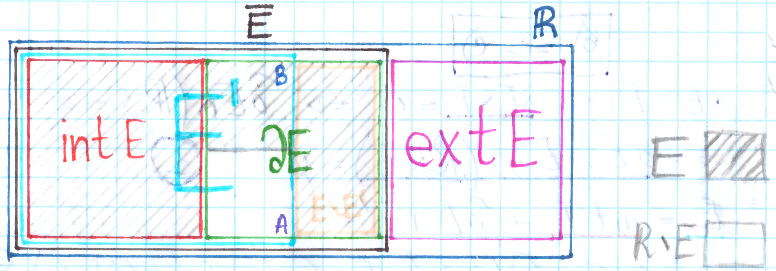 E̅
ℝ
int E
E'
∂E
B
A
E∖E'
ext E
E
ℝ∖E